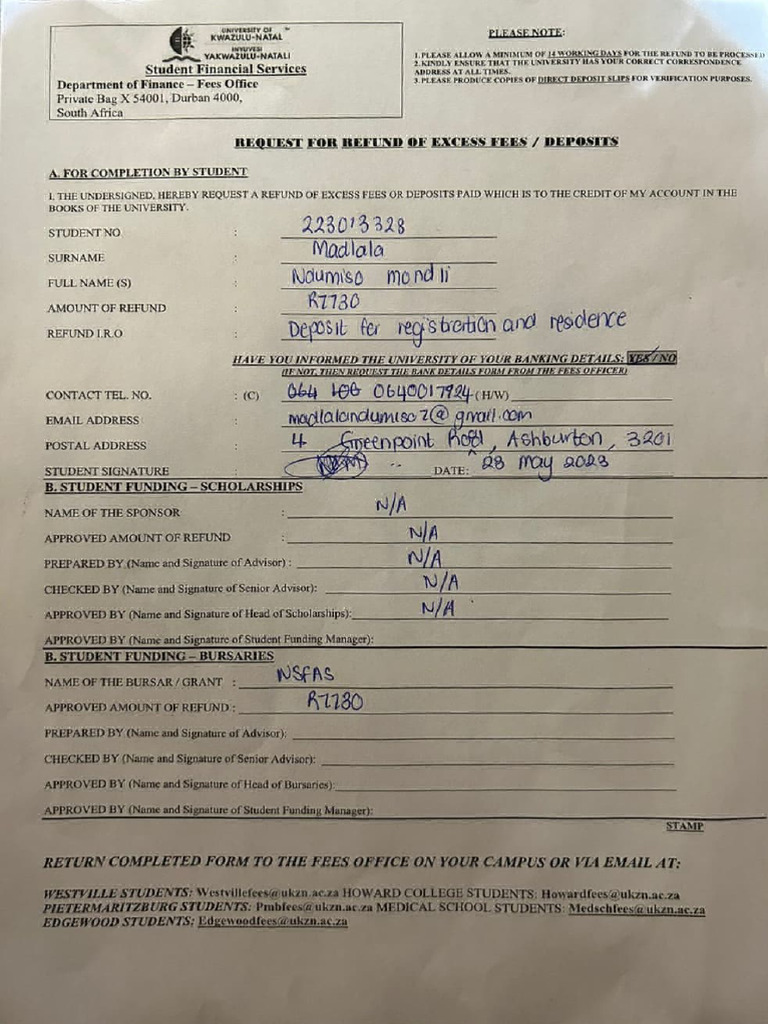 UNIVERSITY OF
KWAZULU-NATAL
INYUVESI
YAKWAZULU-NATALI
Student Financial Services
Department of Finance – Fees Office
Private Bag X 54001, Durban 4000,
South Africa
PLEASE NOTE:
1. PLEASE ALLOW A MINIMUM OF 14 WORKING DAYS FOR THE REFUND TO BE PROCESSED
2. KINDLY ENSURE THAT THE UNIVERSITY HAS YOUR CORRECT CORRESPONDENCE
ADDRESS AT ALL TIMES.
3. PLEASE PRODUCE COPIES OF DIRECT DEPOSIT SLIPS FOR VERIFICATION PURPOSES.
REQUEST FOR REFUND OF EXCESS FEES / DEPOSITS
A. FOR COMPLETION BY STUDENT
I, THE UNDERSIGNED, HEREBY REQUEST A REFUND OF EXCESS FEES OR DEPOSITS PAID WHICH IS TO THE CREDIT OF MY ACCOUNT IN THE
BOOKS OF THE UNIVERSITY.
STUDENT NO : 223013328
SURNAME : Madlala
FULL NAME (S) : Ndumiso mondli
AMOUNT OF REFUND : R7730
REFUND I.R.O : Deposit for registration and residence
HAVE YOU INFORMED THE UNIVERSITY OF YOUR BANKING DETAILS: YES / NO
(IF NOT, THEN REQUEST THE BANK DETAILS FORM FROM THE FEES OFFICER)
CONTACT TEL. NO. : (C) 0640017924 (H/W)
EMAIL ADDRESS : madlalandumiso7@gmail.com
POSTAL ADDRESS : 4 Greenpoint Road, Ashburton, 3201
STUDENT SIGNATURE : DATE: 28 May 2023
B. STUDENT FUNDING – SCHOLARSHIPS
NAME OF THE SPONSOR : N/A
APPROVED AMOUNT OF REFUND : N/A
PREPARED BY (Name and Signature of Advisor) : N/A
CHECKED BY (Name and Signature of Senior Advisor): N/A
APPROVED BY (Name and Signature of Head of Scholarships): N/A
APPROVED BY (Name and Signature of Student Funding Manager):
B. STUDENT FUNDING – BURSARIES
NAME OF THE BURSAR / GRANT : NSFAS
APPROVED AMOUNT OF REFUND : R7730
PREPARED BY (Name and Signature of Advisor):
CHECKED BY (Name and Signature of Senior Advisor):
APPROVED BY (Name and Signature of Head of Bursaries):
APPROVED BY (Name and Signature of Student Funding Manager):
STAMP
RETURN COMPLETED FORM TO THE FEES OFFICE ON YOUR CAMPUS OR VIA EMAIL AT:
WESTVILLE STUDENTS: Westvillefees@ukzn.ac.za HOWARD COLLEGE STUDENTS: Howardfees@ukzn.ac.za
PIETERMARITZBURG STUDENTS: Pmbfees@ukzn.ac.za MEDICAL SCHOOL STUDENTS: Medschfees@ukzn.ac.za
EDGEWOOD STUDENTS: Edgewoodfees@ukzn.ac.za